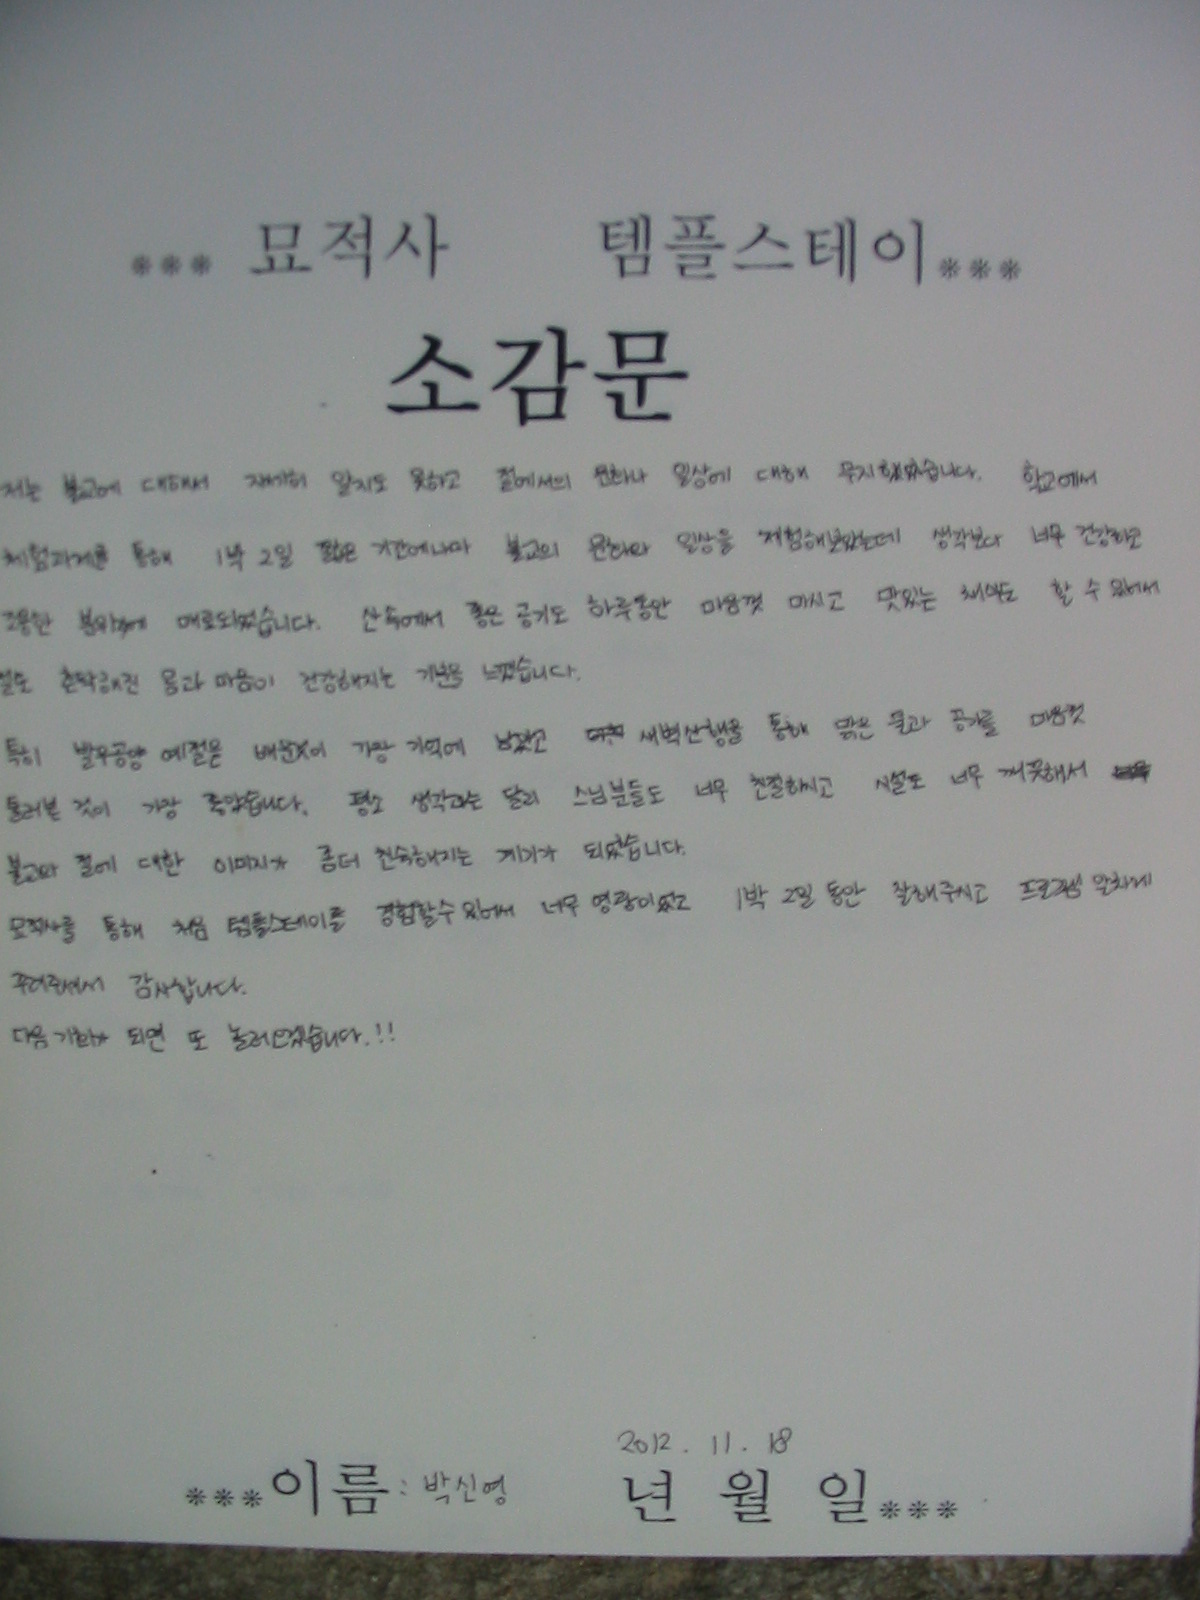 *** 묘적사 템플스테이 ***
소감문
저는 불교에 대해서 자세히 알지도 못하고 절에서의 문화나 일상에 대해 무지했었습니다. 학교에서
체험과제를 통해 1박 2일 짧은 기간에나마 불교의 문화와 일상을 체험해보았는데 생각보다 너무 건강하고
조용한 분위기에 매료되었습니다. 산속에서 좋은 공기도 하루동안 마음껏 마시고 맛있는 채식도 할 수 있어서
혼탁해진 몸과 마음이 건강해지는 기분을 느꼈습니다.
특히 발우공양 예절은 배운것이 가장 기억에 남았고 새벽산행을 통해 맑은 물과 공기를 마음껏
둘러본 것이 가장 좋았습니다. 평소 생각과는 달리 스님분들도 너무 친절하시고 시설도 너무 깨끗해서
불교와 절에 대한 이미지가 좀더 친숙해지는 계기가 되었습니다.
묘적사를 통해 처음 템플스테이를 경험할수있어서 너무 영광이었고 1박 2일 동안 잘해주시고 프로그램 알차게
꾸려주셔서 감사합니다.
다음 기회가 되면 또 놀러오겠습니다.!!
2012. 11. 18
***이름 : 박신영 년 월 일***